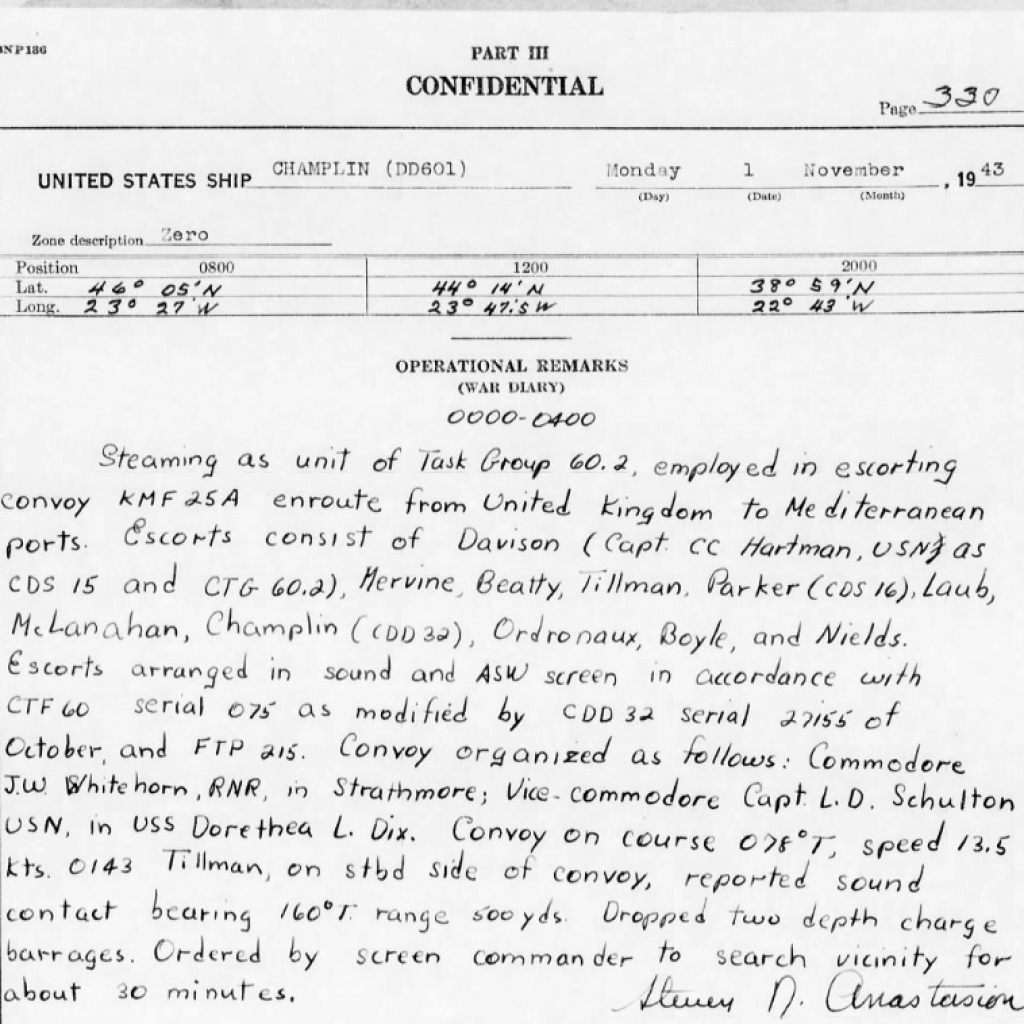 NP186
PART III
CONFIDENTIAL
Page 330
UNITED STATES SHIP CHAMPLIN (DD601) Monday 1 November, 1943
(Day) (Date) (Month)
Zone description Zero
Position 0800 1200 2000
Lat. 46° 05'N 44° 14'N 38° 59'N
Long. 23° 27'W 23° 47'.5 W 22° 43'W
OPERATIONAL REMARKS
(WAR DIARY)
0000-0400
Steaming as unit of Task Group 60.2, employed in escorting
convoy KMF 25A enroute from United Kingdom to Mediterranean
ports. Escorts consist of Davison (Capt. CC Hartman, USN, as
CDS 15 and CTG 60.2), Mervine, Beatty, Tillman, Parker (CDS 16), Laub,
McLanahan, Champlin (CDD 32), Ordronaux, Boyle, and Nields.
Escorts arranged in sound and ASW screen in accordance with
CTF 60 serial 075 as modified by CDD 32 serial 27155 of
October, and FTP 215. Convoy organized as follows: Commodore
J.W. Whitehorn, RNR, in Strathmore; Vice-commodore Capt. L.D. Schulton
USN, in USS Dorethea L. Dix. Convoy on course 078°T, speed 13.5
kts. 0143 Tillman, on stbd side of convoy, reported sound
contact bearing 160°T. range 500 yds. Dropped two depth charge
barrages. Ordered by screen commander to search vicinity for
about 30 minutes. Steven N. Anastasion